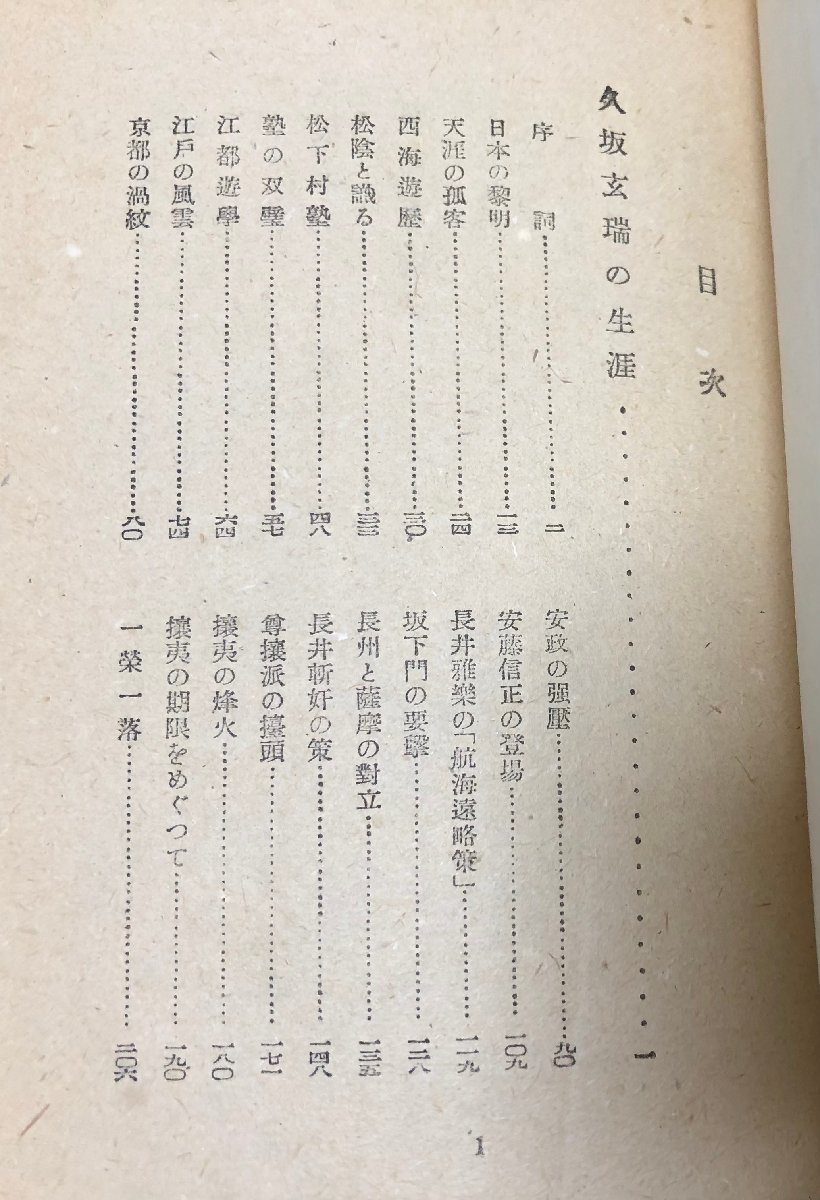 目次
久坂玄瑞の生涯……一
序詞……二
日本の黎明……一三
天涯の孤客……二四
西海遊歴……三〇
松陰と識る……三三
松下村塾……四八
塾の双璧……五七
江都遊學……六四
江戶の風雲……七四
京都の渦紋……八〇
安政の强壓……九〇
安藤信正の登場……一〇九
長井雅樂の「航海遠略策」……一一九
坂下門の要擊……一二八
長州と薩摩の對立……一三五
長井斬奸の策……一四八
尊攘派の擡頭……一七一
攘夷の烽火……一八〇
攘夷の期限をめぐつて……一九〇
一榮一落……二〇六
1